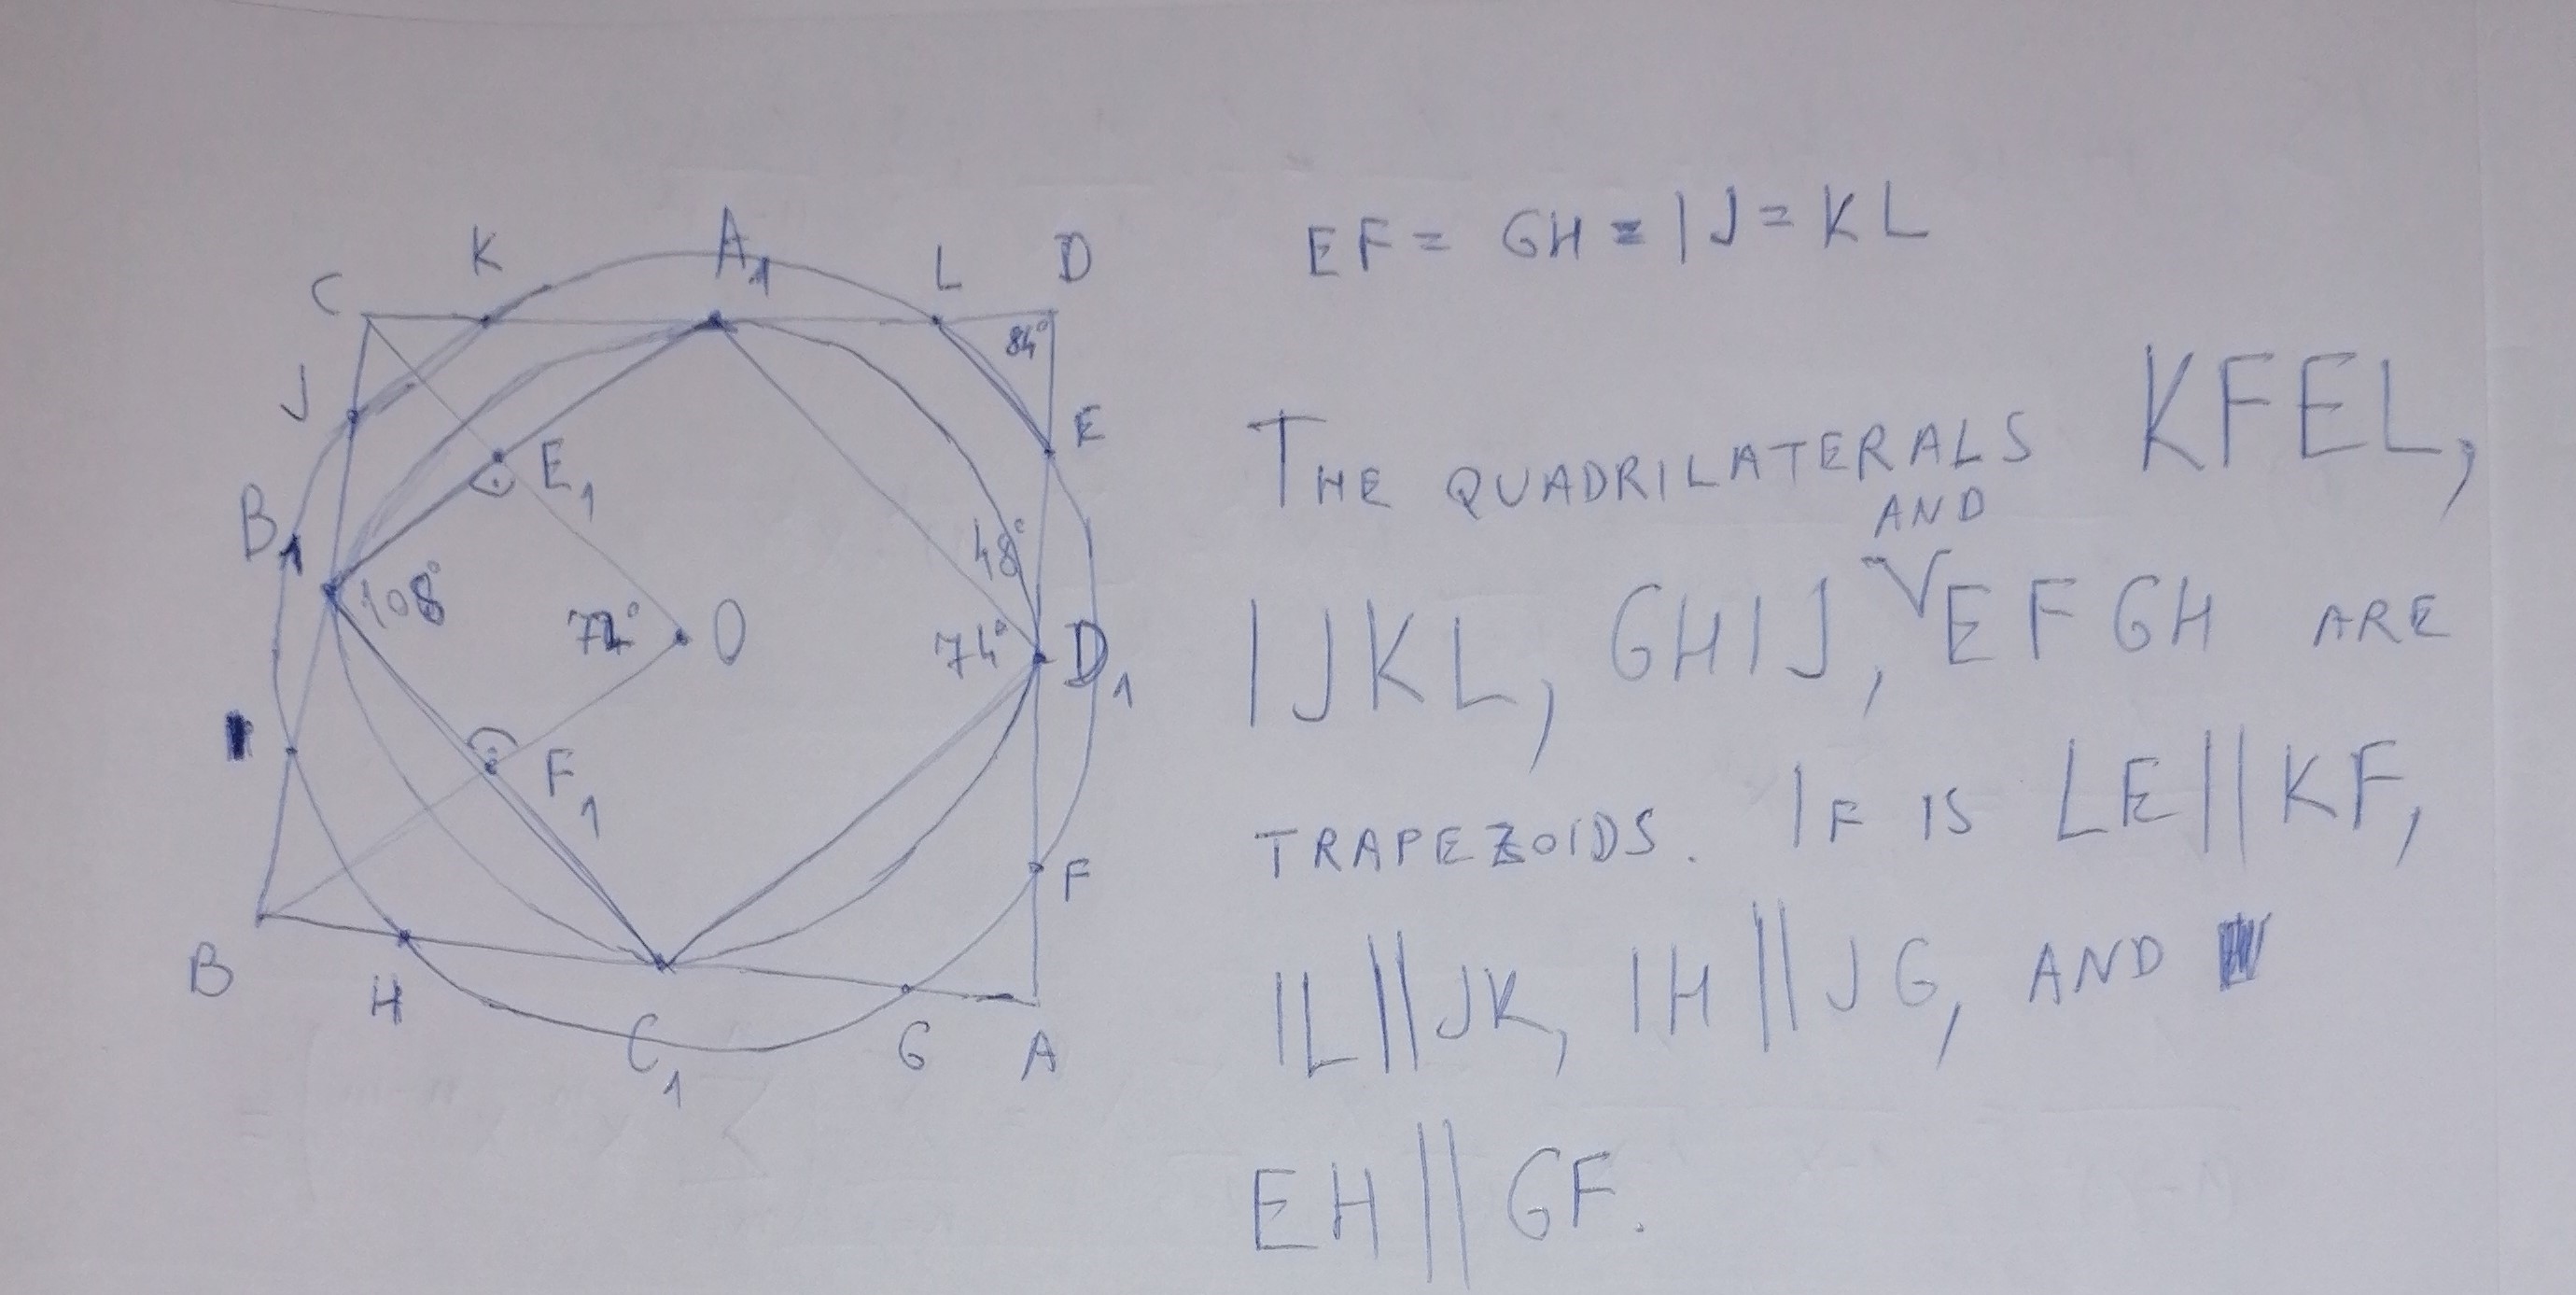 K A₁ L D
C
84°
J
E
E₁
B₁
48°
108°
72° O 74° D₁
I
F₁
F
B
H
C₁ G A
EF = GH = IJ = KL
THE QUADRILATERALS KFEL,
IJKL, GHIJ, AND EFGH ARE
TRAPEZOIDS. IF IS LE||KF,
IL||JK, IH||JG, AND
EH||GF.